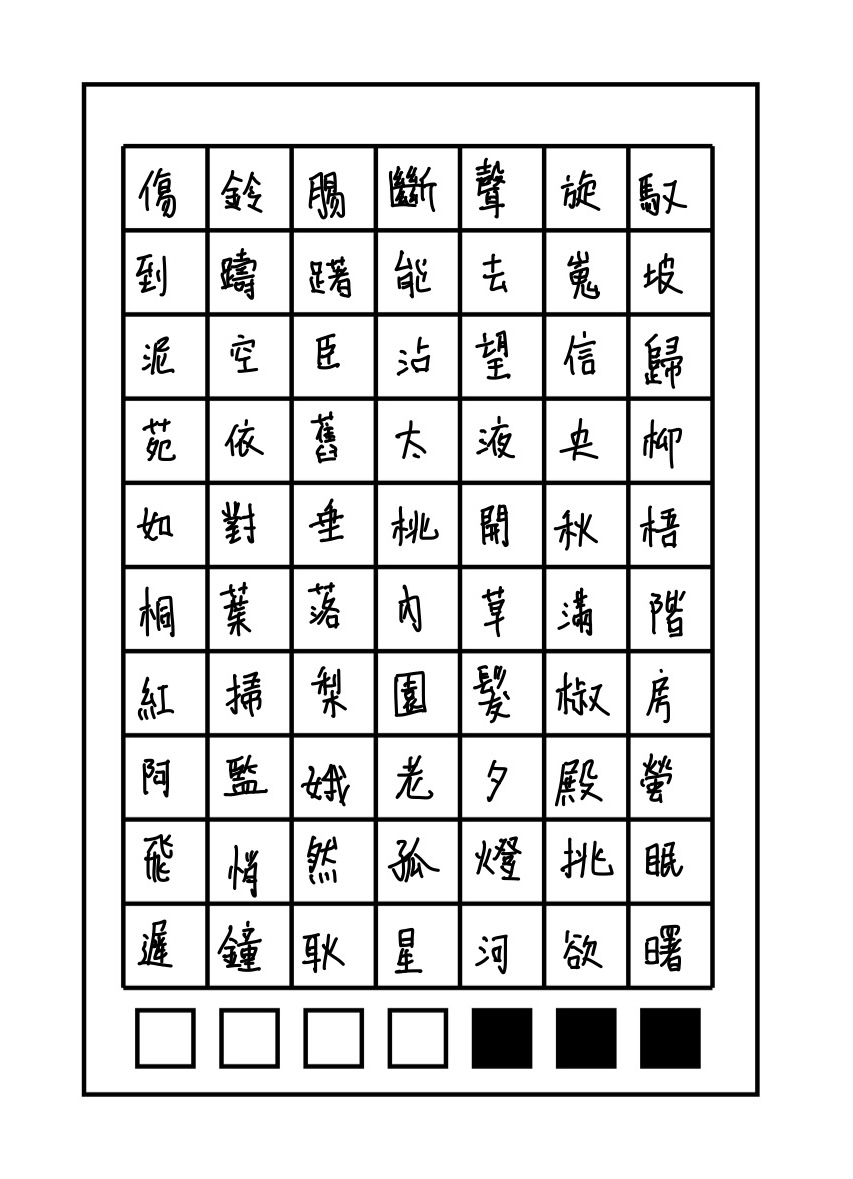 傷鈴腸斷聲旋馭
到躊躇能去嵬坡
泥空臣沾望信歸
苑依舊太液央柳
如對垂桃開秋梧
桐葉落內草滿階
紅掃梨園髮椒房
阿監娥老夕殿螢
飛悄然孤燈挑眠
遲鐘耿星河欲曙